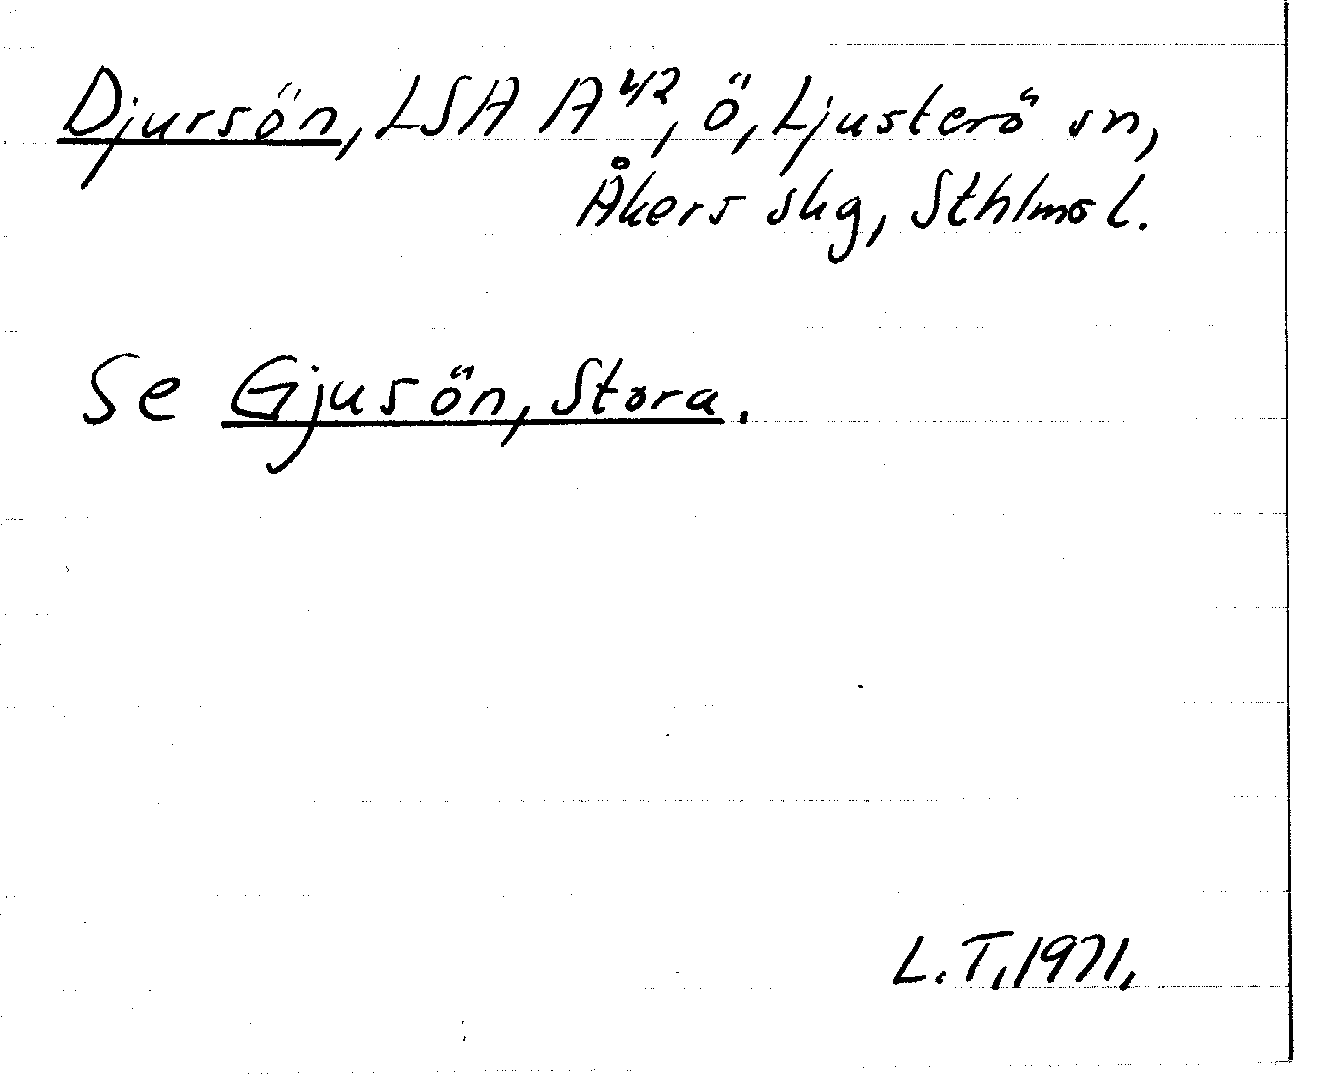 Djursön, LSA A⁴², ö, Ljusterö sn,
Åkers skg, Sthlms l.
Se Gjusön, Stora.
L.T. 1971.